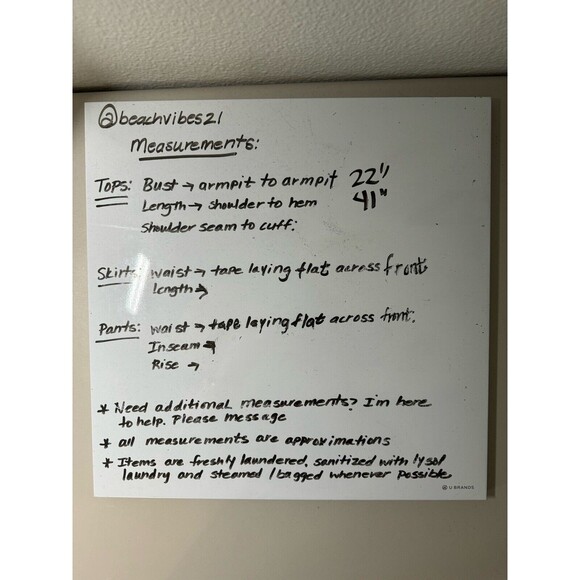 @beachvibes21
Measurements:
Tops: Bust → armpit to armpit 22"
Length → shoulder to hem 41"
Shoulder seam to cuff:
Skirts: waist → tape laying flat across front
Length →
Pants: waist → tape laying flat across front.
Inseam →
Rise →
* Need additional measurements? I'm here
to help. Please message
* all measurements are approximations
* Items are freshly laundered, sanitized with lysol
laundry and steamed / bagged whenever possible
U BRANDS